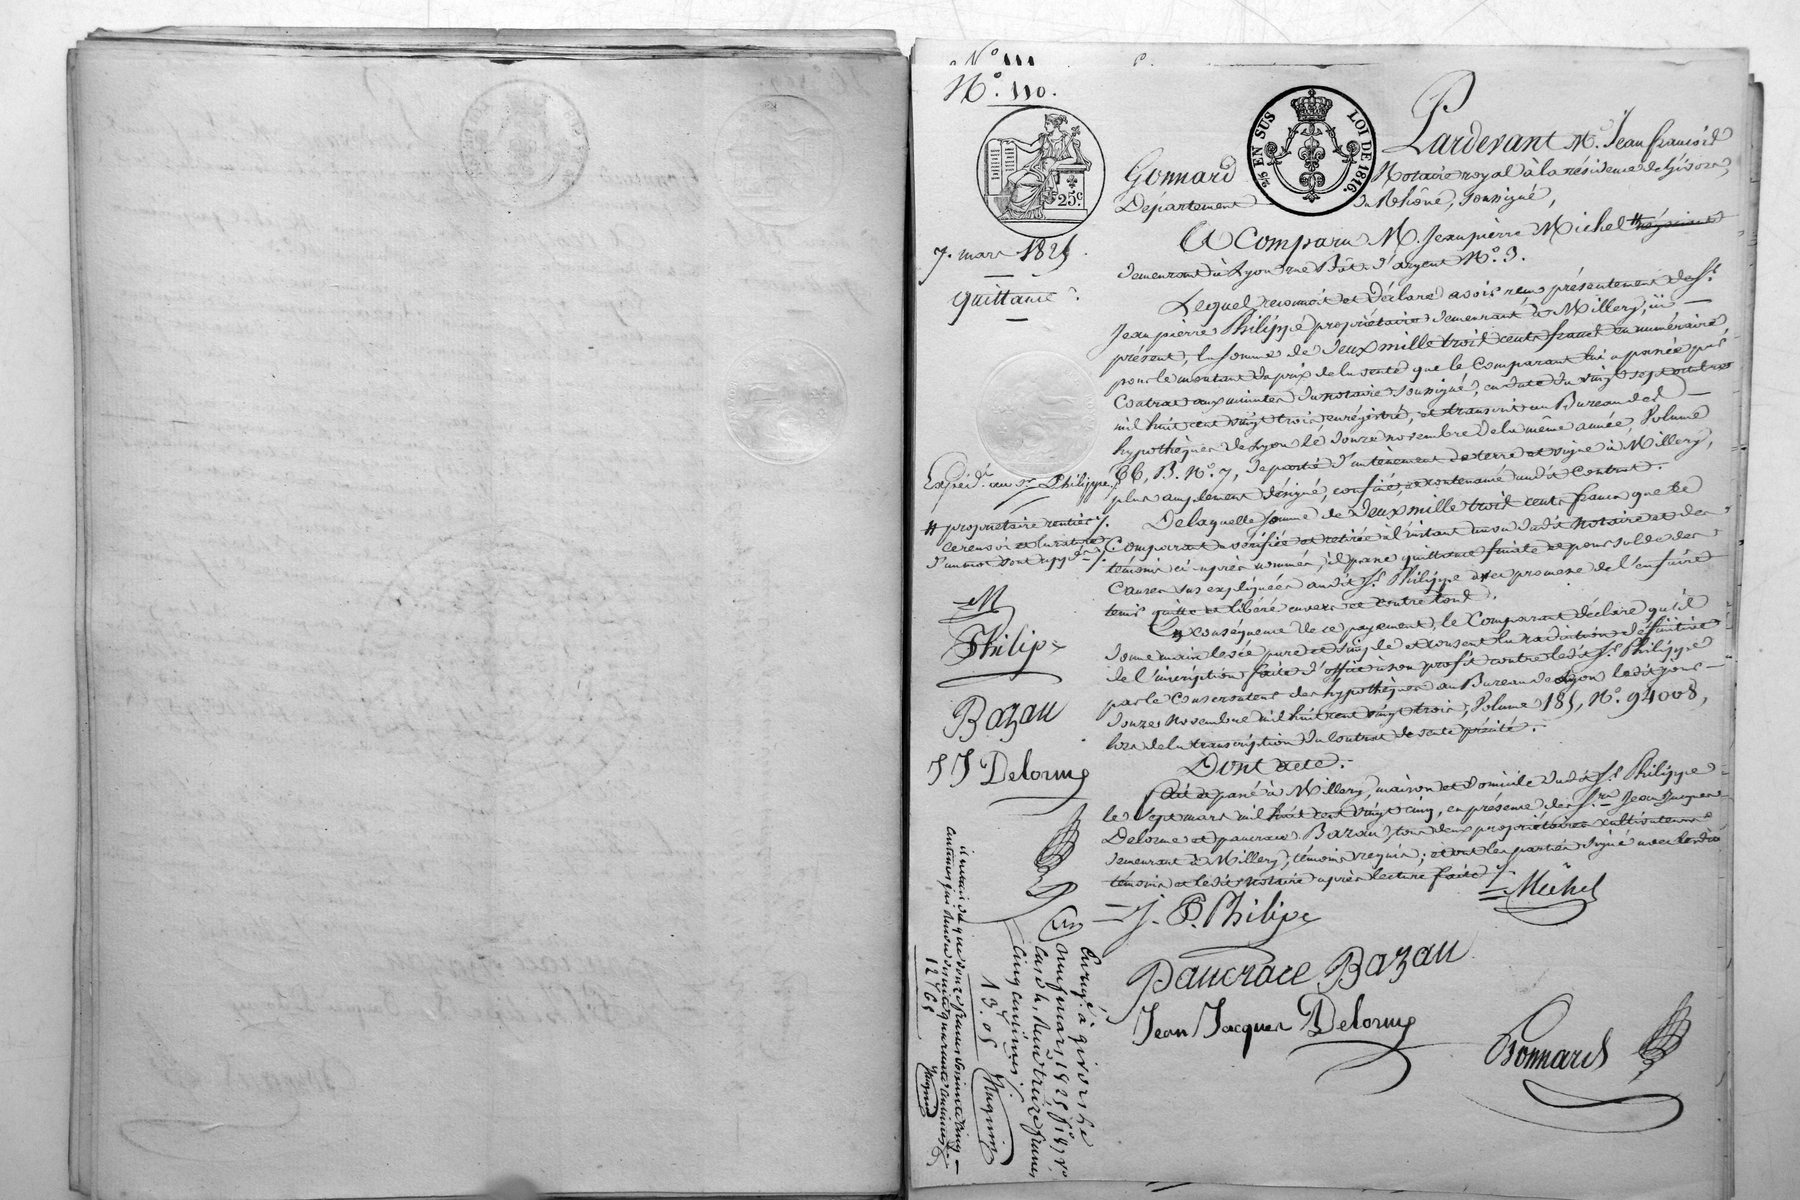 N.º 111
N.º 110.
2/5 EN SUS
LOI DE 1816.
25c
7. mars 1825
quittance
Pardevant M.e Jean françois
Gonnard Notaire royal à la résidence de Givors,
Département du Rhône, soussigné,
A Comparu M. Jean pierre Michel # négociant
demeurant à Lyon rue Bât d'argent N.º 3.
Lequel reconnoit et Déclare avoir reçu présentement du S.r
Jean pierre Philippe propriétaire demeurant à Millery, ici
présent, la somme de deux mille trois cents francs en numéraire,
pour le montant du prix de la vente que le Comparant lui a passée par
Contrat aux minutes du notaire soussigné, en date du vingt sept octobre
mil huit cent vingt trois, enrégistré, et transcrit au Bureau des
hypothèques de Lyon le douze novembre de la même année, Volume
B. N.º 7, d'un tènement de terre et vigne à Millery,
plus amplement désigné, confiné, et contenancé audit Contrat.
De laquelle somme de deux mille trois cents francs que le
Comparant a vérifiée et retirée à l'instant au vu dudit notaire et des
témoins ci après nommés, il passe quittance finale et pour solde des
Causes sus expliquées audit S.r Philippe avec promesse de l'en faire
tenir quitte et libéré envers et contre tous.
En conséquence de ce payement, le Comparant déclare qu'il
donne main levée pure et simple et consent la radiation définitive
de l'inscription faite d'office à son profit contre ledit S.r Philippe
par le Conservateur des hypothèques au Bureau de Lyon ledit jour
douze novembre mil huit cent vingt trois, Volume 185, N.º 94008,
lors de la transcription du Contrat de vente précité.
Dont acte.
Fait et passé à Millery, maison et domicile dudit S.r Philippe
le sept mars mil huit cent vingt cinq, en présence des S.rs Jean Jacques
Delorme et pancrace Bazau, tous deux propriétaires cultivateurs
demeurant à Millery, témoins requis; et ont les parties signé avec lesdits
témoins et ledit Notaire après lecture faite
Michel
J. P. Philipe
Pancrace Bazau
Jean Jacques Delorme
Gonnard
Expéd.on au S.r Philippe
# propriétaire rentier
ce renvoi et la rature
d'un mot sont app.és
M
Philip
Bazau
J J Delorme
Enreg.é à givors le
neuf mars 1825 f.º 187 v.º
Case 4. Reçu treize francs
cinq centimes.
13.05 Huguin
centimes qui réduit
12.65